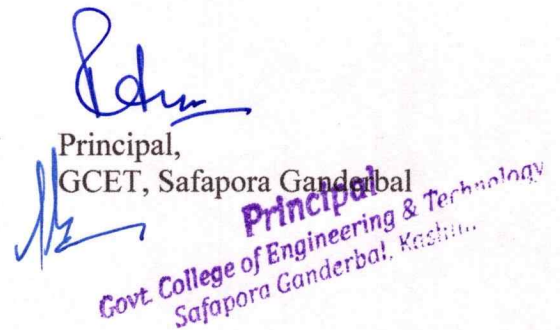 Principal,
GCET, Safapora Ganderbal
Principal
Govt. College of Engineering & Technology
Safapora Ganderbal,